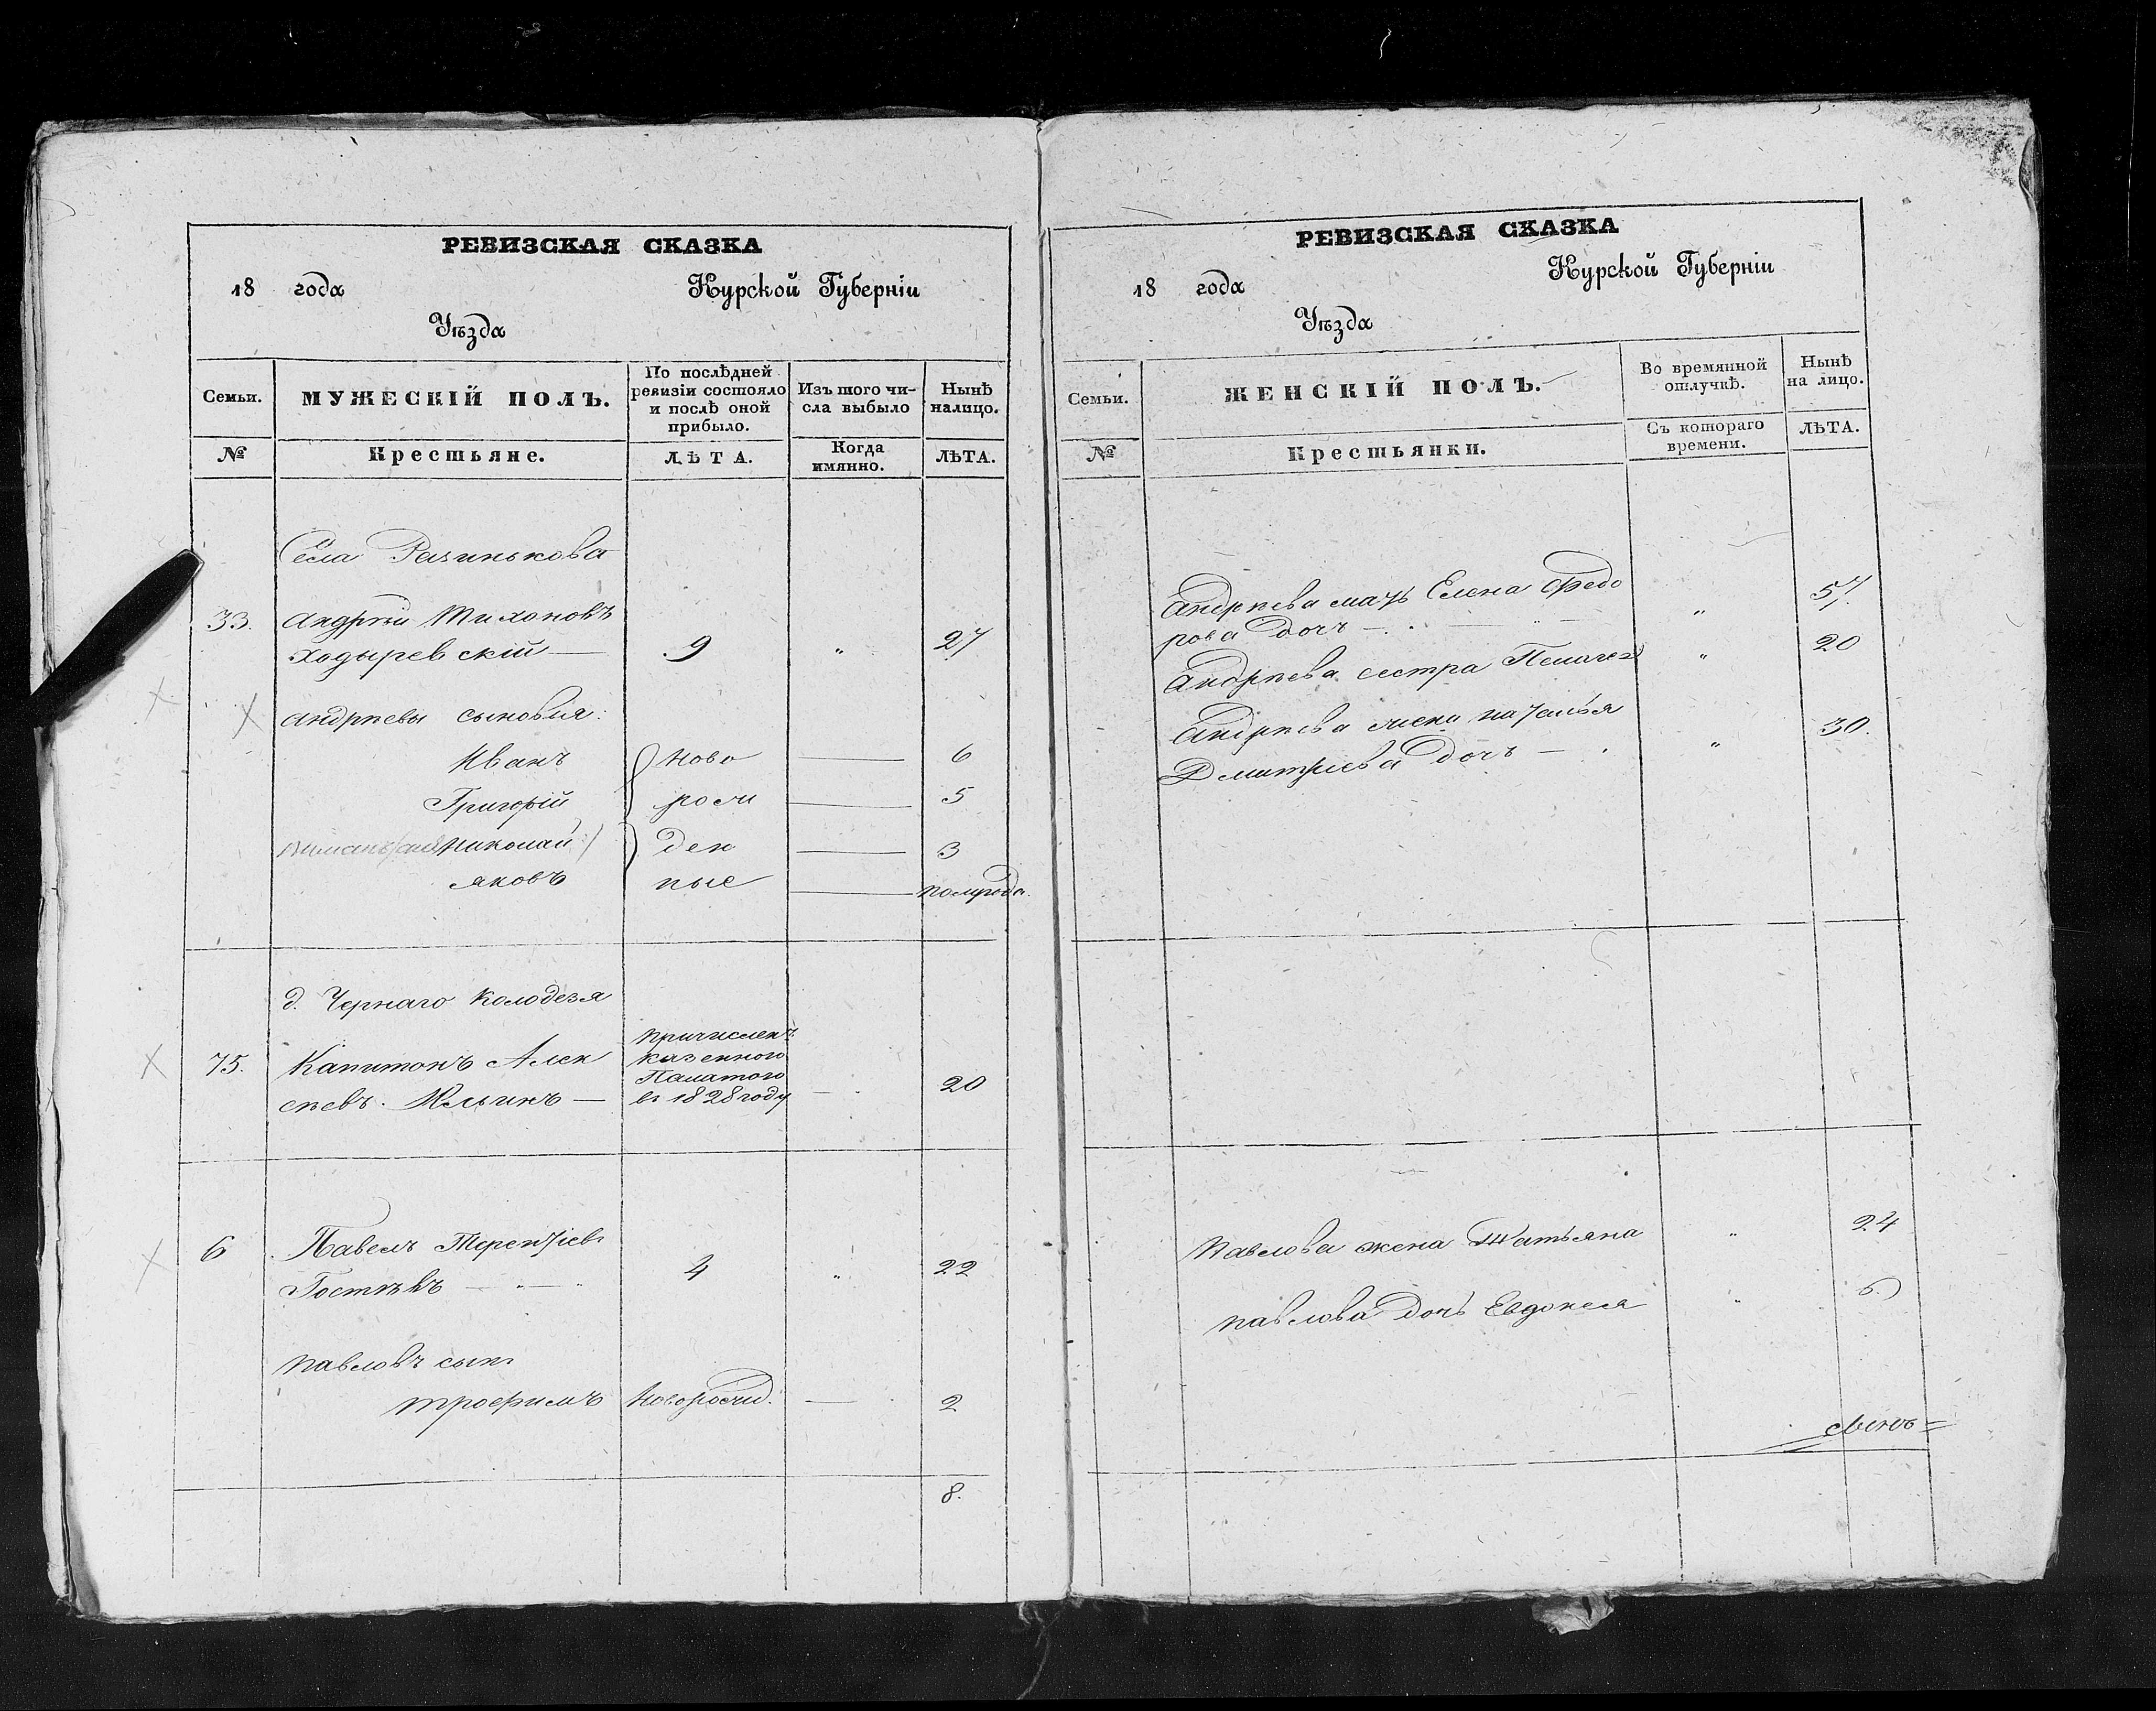 РЕВИЗСКАЯ СКАЗКА
18 года Курской Губерніи
Уѣзда
Семьи. МУЖЕСКІЙ ПОЛЪ. По послѣдней ревизіи состояло и послѣ оной прибыло. Изъ того числа выбыло Нынѣ налицо.
№ Крестьяне. ЛѢТА. Когда имянно. ЛѢТА.
Села
33. Андрѣй Тихоновъ
Ходыревскій — 9 " 27
Андрѣевы сыновья:
Иванъ Ново — 6
Григорій рож — 5
Николай ден — 3
Яковъ ные — полгода.
д. Чернаго Колодезя
75. Капитонъ Алек
сѣевъ Ильинъ —
Причислен
Казенною
Палатою
въ 1828 году
— 20
6 Павелъ Терентіевъ
4 " 22
Павловъ сынъ
ТрофимъНоворожд. — 2
8.
РЕВИЗСКАЯ СКАЗКА
18 года Курской Губерніи
Уѣзда
Семьи. ЖЕНСКІЙ ПОЛЪ. Во времянной отлучкѣ. Нынѣ на лицо.
№ Крестьянки. Съ котораго времени. ЛѢТА.
Андрѣева мать Елена Федо
рова дочь — " 57.
Андрѣева сестра Пелагея " 20
Андрѣева жена Наталья
Дмитріева дочь — " 30.
Павлова жена Татьяна " 24
Павлова дочь Евдокея " 6.